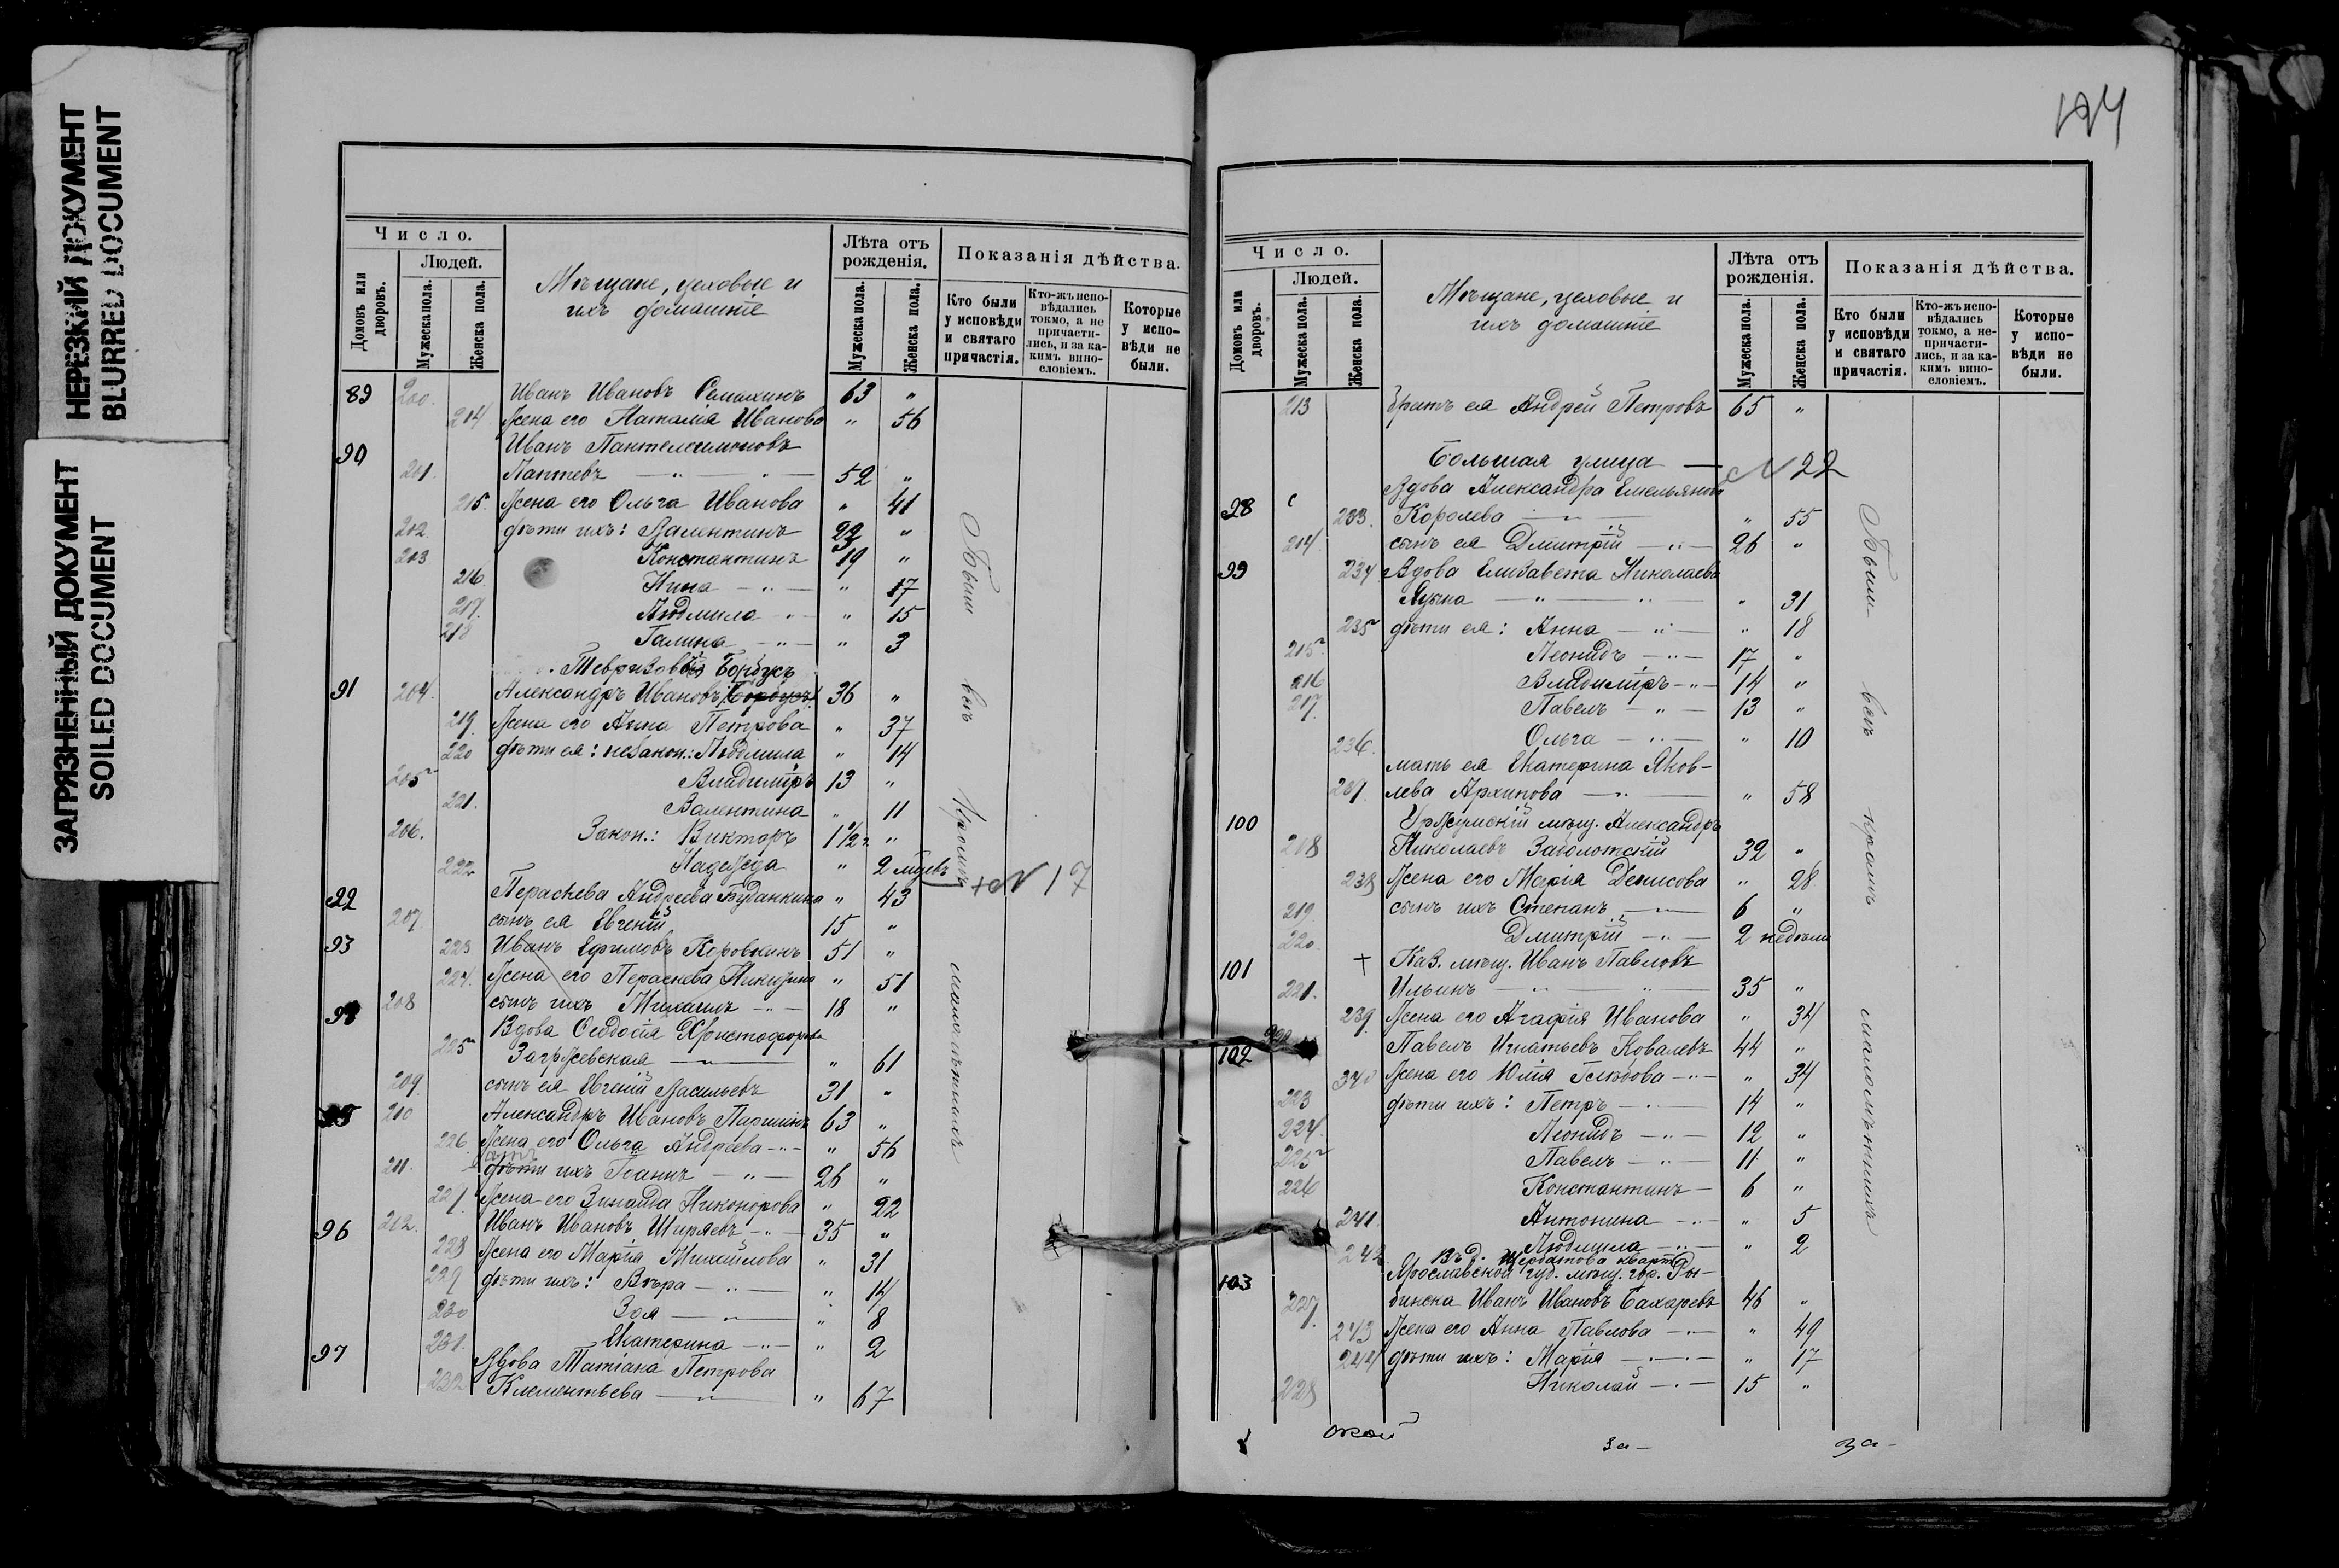 НЕРЕЗКИЙ ДОКУМЕНТ
BLURRED DOCUMENT
ЗАГРЯЗНЕННЫЙ ДОКУМЕНТ
SOILED DOCUMENT
Число.
Людей.
Домовъ или дворовъ.
Мужеска пола.
Женска пола.
Мѣщане, цеховые и
ихъ домашніе
Лѣта отъ рожденія.
Мужеска пола.
Женска пола.
Показанія дѣйства.
Кто были у исповѣди и святаго причастія.
Кто-жъ исповѣдались токмо, а не причастились, и за какимъ винословіемъ.
Которые у исповѣди не были.
89 200. Иванъ Ивановъ Семахинъ 63 "
214 Жена его Наталія Иванова " 56
90 Иванъ Пантелеимоновъ
201. Лаптевъ — " — " — 52 "
215. Жена его Ольга Иванова " 41
202. дѣти ихъ: Валентинъ 22 "
203 Константинъ 19 "
216. Нина — " — " 17
217. Людмила " — " 15
218 Галина — " — " 3
Борбусъ
91 204. Александръ Ивановъ 36 "
219. Жена его Анна Петрова " 37
220 дѣти ея: незакон.: Людмила " 14
205 Владиміръ 13 "
221. Валентина " 11
206. Закон.: Викторъ 1½ "
222 Надежда " 2 мѣсяцъ
+ N 17
92 Параскева Андреева Буданкина " 43
207 сынъ ея Евгеній 15 "
93 223 Иванъ Ефимовъ Коровкинъ 51 "
224. Жена его Параскева " 51
94 208 сынъ ихъ Михаилъ — " — 18 "
Вдова Феодосія Христофорова
225 Загржевская — " — " 61
209. сынъ ея Евгеній Васильевъ 31 "
95 210 Александръ Ивановъ Паришинъ 63 "
226 Жена его Ольга Андреева — " — " 56
211. дѣти ихъ Іоаннъ — " — 26 "
227 Жена его Зинаида Никонорова " 22
96 212. Иванъ Ивановъ Ширяевъ — " — 35 "
228 Жена его Марія Михайлова " 31
229 дѣти ихъ: Вѣра — " — " 14
230 Зоя — " — " 8
231. Екатерина — " — " 2
97 Вдова Татіана Петрова
232 Клементьева — " — " 67
Были всѣ кромѣ малолѣтнихъ
Число.
Людей.
Домовъ или дворовъ.
Мужеска пола.
Женска пола.
Мѣщане, цеховые и
ихъ домашніе
Лѣта отъ рожденія.
Мужеска пола.
Женска пола.
Показанія дѣйства.
Кто были у исповѣди и святаго причастія.
Кто-жъ исповѣдались токмо, а не-причастились, и за какимъ винословіемъ.
Которые у исповѣди не были.
213 Братъ ея Андрей Петровъ 65 "
Большая улица — N 22
98 Вдова Александра Емельянова
233. Королева — " — " 55
214. сынъ ея Дмитрій — " — 26 "
99 234 Вдова Елизавета Николаева
— " — " — " 31
235 дѣти ея: Анна — " — " 18
215. Леонидъ — " — 17 "
216 Владиміръ — " — 14 "
217. Павелъ — " — 13 "
236. Ольга — " — " 10
мать ея Екатерина Яков-
237. лева Архипова — " — " 58
100 Уржумскій мѣщ. Александръ
218 Николаевъ Заболотскій 32 "
238 Жена его Марія Денисова " 28
219. сынъ ихъ Степанъ — " — 6 "
220. Дмитрій — " — 2 недѣли
101 + Каз. мѣщ. Иванъ Павловъ
221. Ильинъ — " — " — 35 "
239 Жена его Агафія Иванова " 34
102 222 Павелъ Игнатьевъ Ковалевъ 44 "
340 Жена его Юлія Глѣбова — " — " 34
223 дѣти ихъ: Петръ — " — 14 "
224. Леонидъ — " — 12 "
225 Павелъ — " — 11 "
226 Константинъ — 6 "
241. Антонина — " — " 5
242 Людмила — " — " 2
Въ д. Щербатова кварт.
103 Ярославской губ. мѣщ. гор. Ры-
227. бинска Иванъ Ивановъ Бахаревъ 46 "
243 Жена его Анна Павлова — " — " 49
244 дѣти ихъ: Марія — " — " 17
228 Николай — " — 15 "
Были всѣ кромѣ малолѣтнихъ
ской за- за-